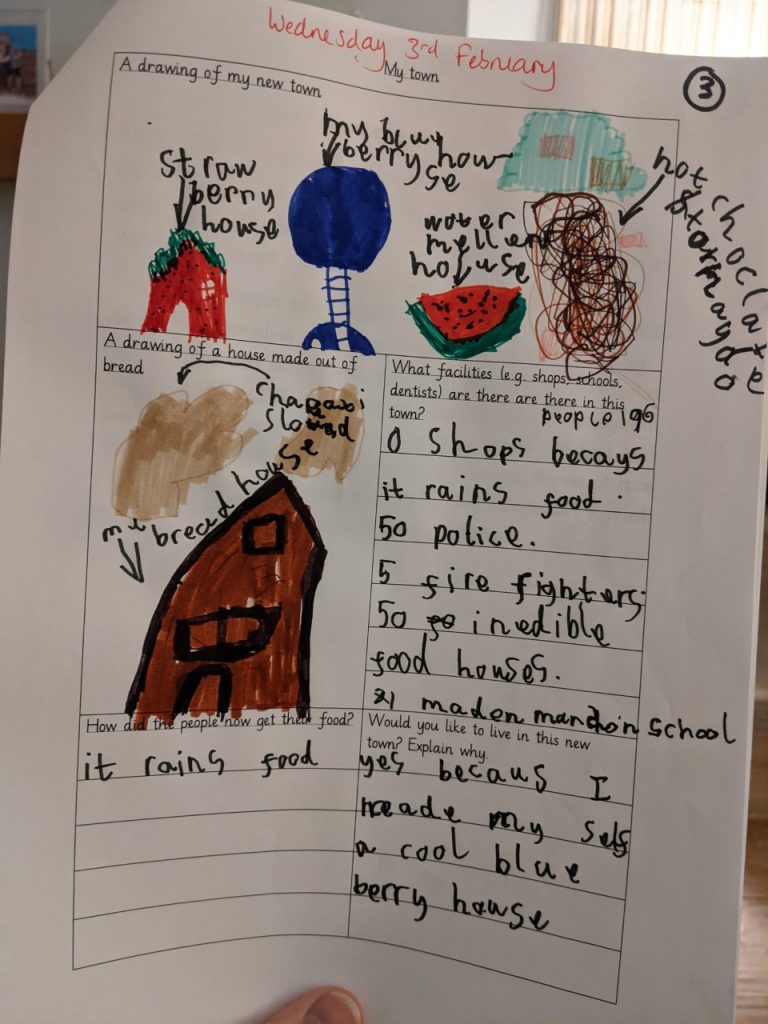 Wednesday 3rd February
My town
3
A drawing of my new town
straw
berry
house
my bluu
berry how
se
water
mellen
house
hot choclate
A drawing of a house made out of
bread
my breead house
What facilities (e.g. shops, schools,
dentists) are there are there in this
town?
people 196
0 shops becays
it rains food.
50 police.
5 fire fighters.
50 inedible
food houses.
school
How did the people now get their food?
it rains food
Would you like to live in this new
town? Explain why.
yes becaus I
meade my self
a cool blue
berry howse